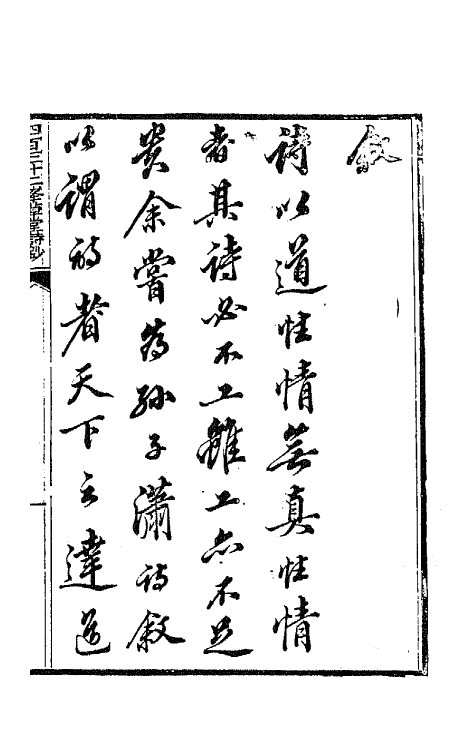 敘
詩以道性情苟無真性情
者其詩必不工雖工亦不足
貴余嘗為孫子瀟詩敘
以謂詩者天下之達道
四百三十二峯草堂詩鈔